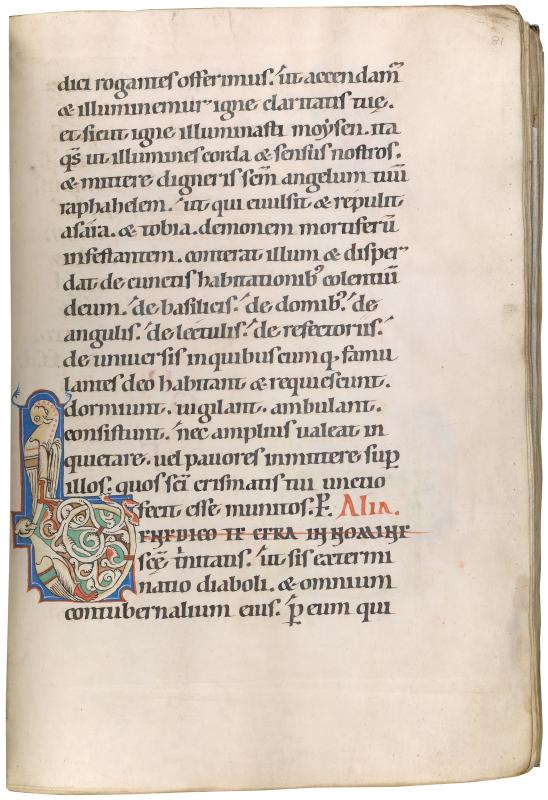 81
dici rogantes offerimus. ut accendam̄
& illuminemur igne claritatis tuę.
et sicut igne illuminasti moẏsen. ita
qs̄ ut illumines corda & sensus nostros.
& mittere digneris scm̄ angelum tuū
raphahelem. ut qui euulsit & repulit
a sara. & tobia. demonem mortiferū
infestantem. conterat illum & disper
dat de cunctis habitationib; colentiū
deum. de basilicis. de domib; de
angulis. de lectulis. de refectoriis.
de uniuersis in quibuscumq, famu
lantes deo habitant & requiescunt.
dormiunt. uigilant. ambulant.
consistunt. nec amplius ualeat in
quietare. uel pauores inmittere sup̄
illos. quos sc̄i crismatis tui unctio
fecit esse munitos. P. Alia.
BENEDICO TE CERA IN NOMINE
scę̄ t̄nitatis. ut sis extermi
natio diaboli. & omnium
contubernalium eius. p̄ eum qui